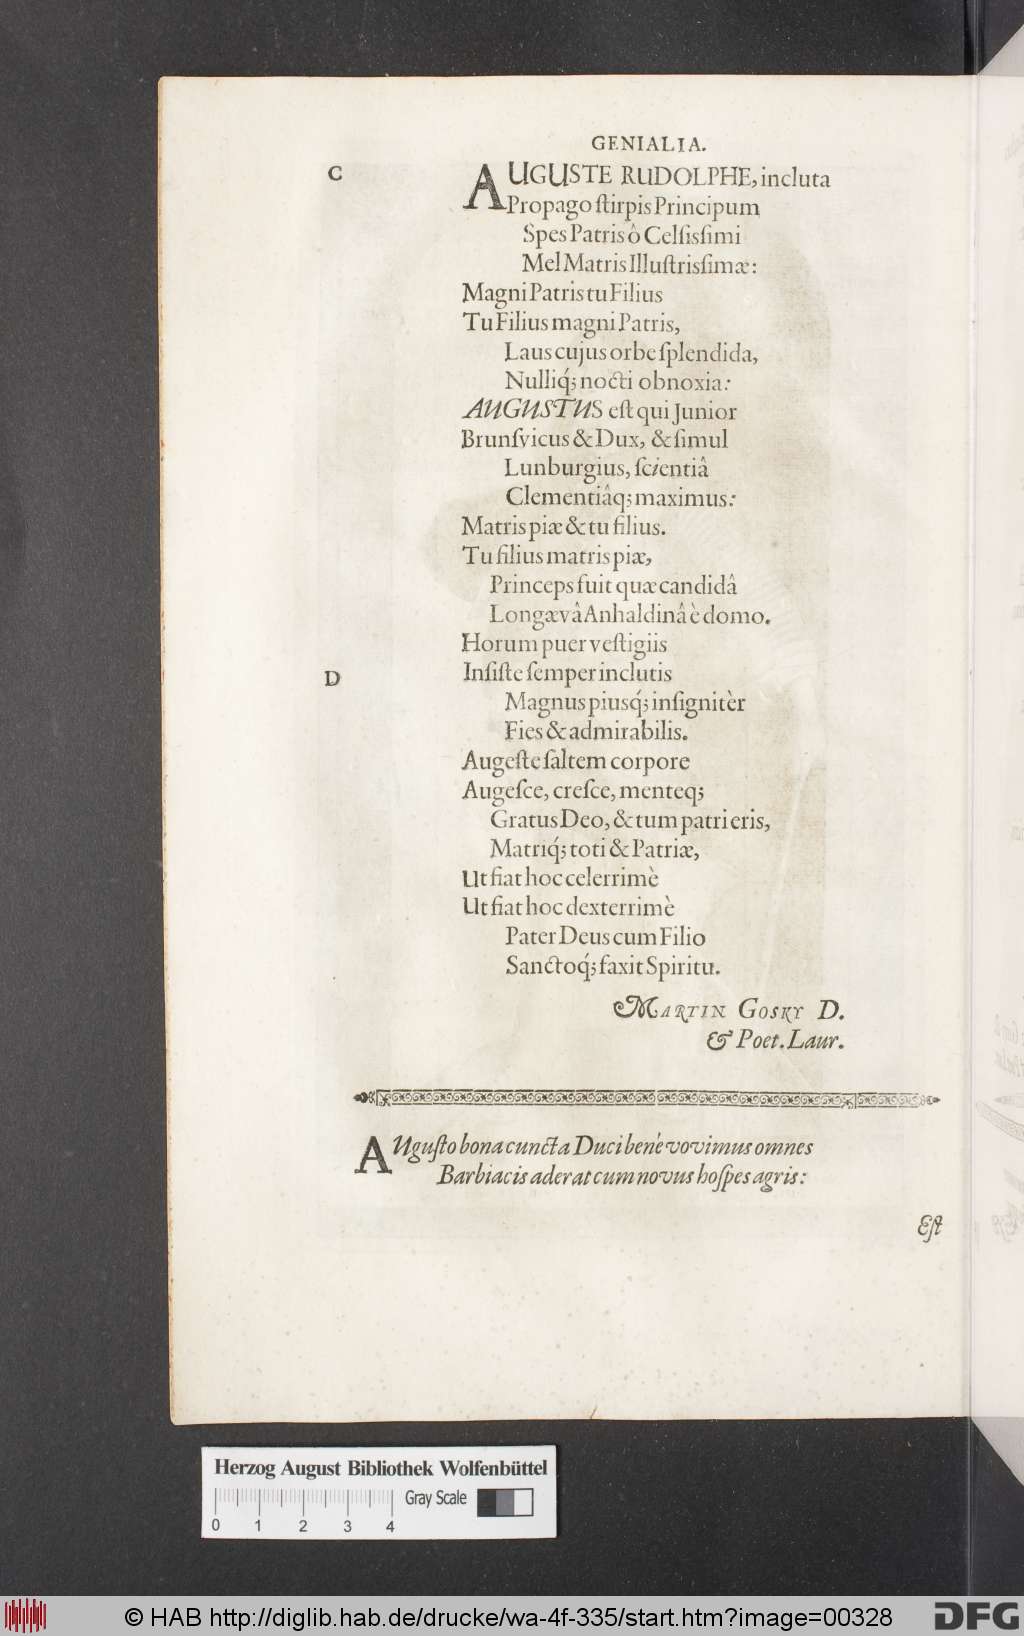 GENIALIA.
C
AUGUSTE RUDOLPHE, incluta
Propago ſtirpis Principum
Spes Patris ô Celſisſimi
Mel Matris Illuſtrisſimæ:
Magni Patris tu Filius
Tu Filius magni Patris,
Laus cujus orbe ſplendida,
Nulliq́; nocti obnoxia:
AUGUSTUS eſt qui Junior
Brunſvicus & Dux, & ſimul
Lunburgius, ſcientiâ
Clementiâq; maximus:
Matris piæ & tu filius.
Tu filius matris piæ,
Princeps fuit quæ candidâ
Longævâ Anhaldinâ è domo.
Horum puer veſtigiis
D
Inſiſte ſemper inclutis
Magnus piusq́; inſignitèr
Fies & admirabilis.
Augeſte ſaltem corpore
Augeſce, creſce, menteq;
Gratus Deo, & tum patri eris,
Matriq́; toti & Patriæ,
Ut fiat hoc celerrimè
Ut fiat hoc dexterrimè
Pater Deus cum Filio
Sanctoq́; faxit Spiritu.
MARTIN GOSKY D.
& Poet. Laur.
AUguſto bona cuncta Duci benè vovimus omnes
Barbiacis aderat cum novus hoſpes agris:
Eſt
Herzog August Bibliothek Wolfenbüttel
Gray Scale
0 1 2 3 4
© HAB http://diglib.hab.de/drucke/wa-4f-335/start.htm?image=00328
DFG